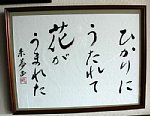 ひかりに
うたれて
花が
うまれた